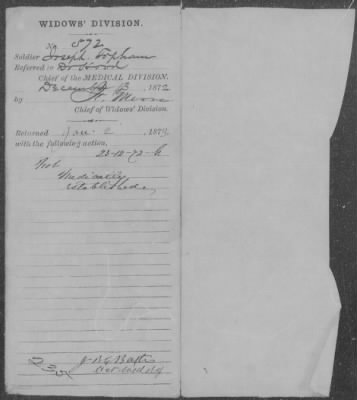 WIDOWS' DIVISION.
No. 572
Soldier Joseph Topham
Referred to Dr Hood
Chief of the MEDICAL DIVISION.
December 13, 1872
by
Chief of Widows' Division.
Returned Jan. 2 1873
with the following action.
23-12-72-h
Not
Medically
established,
J B G Baxter